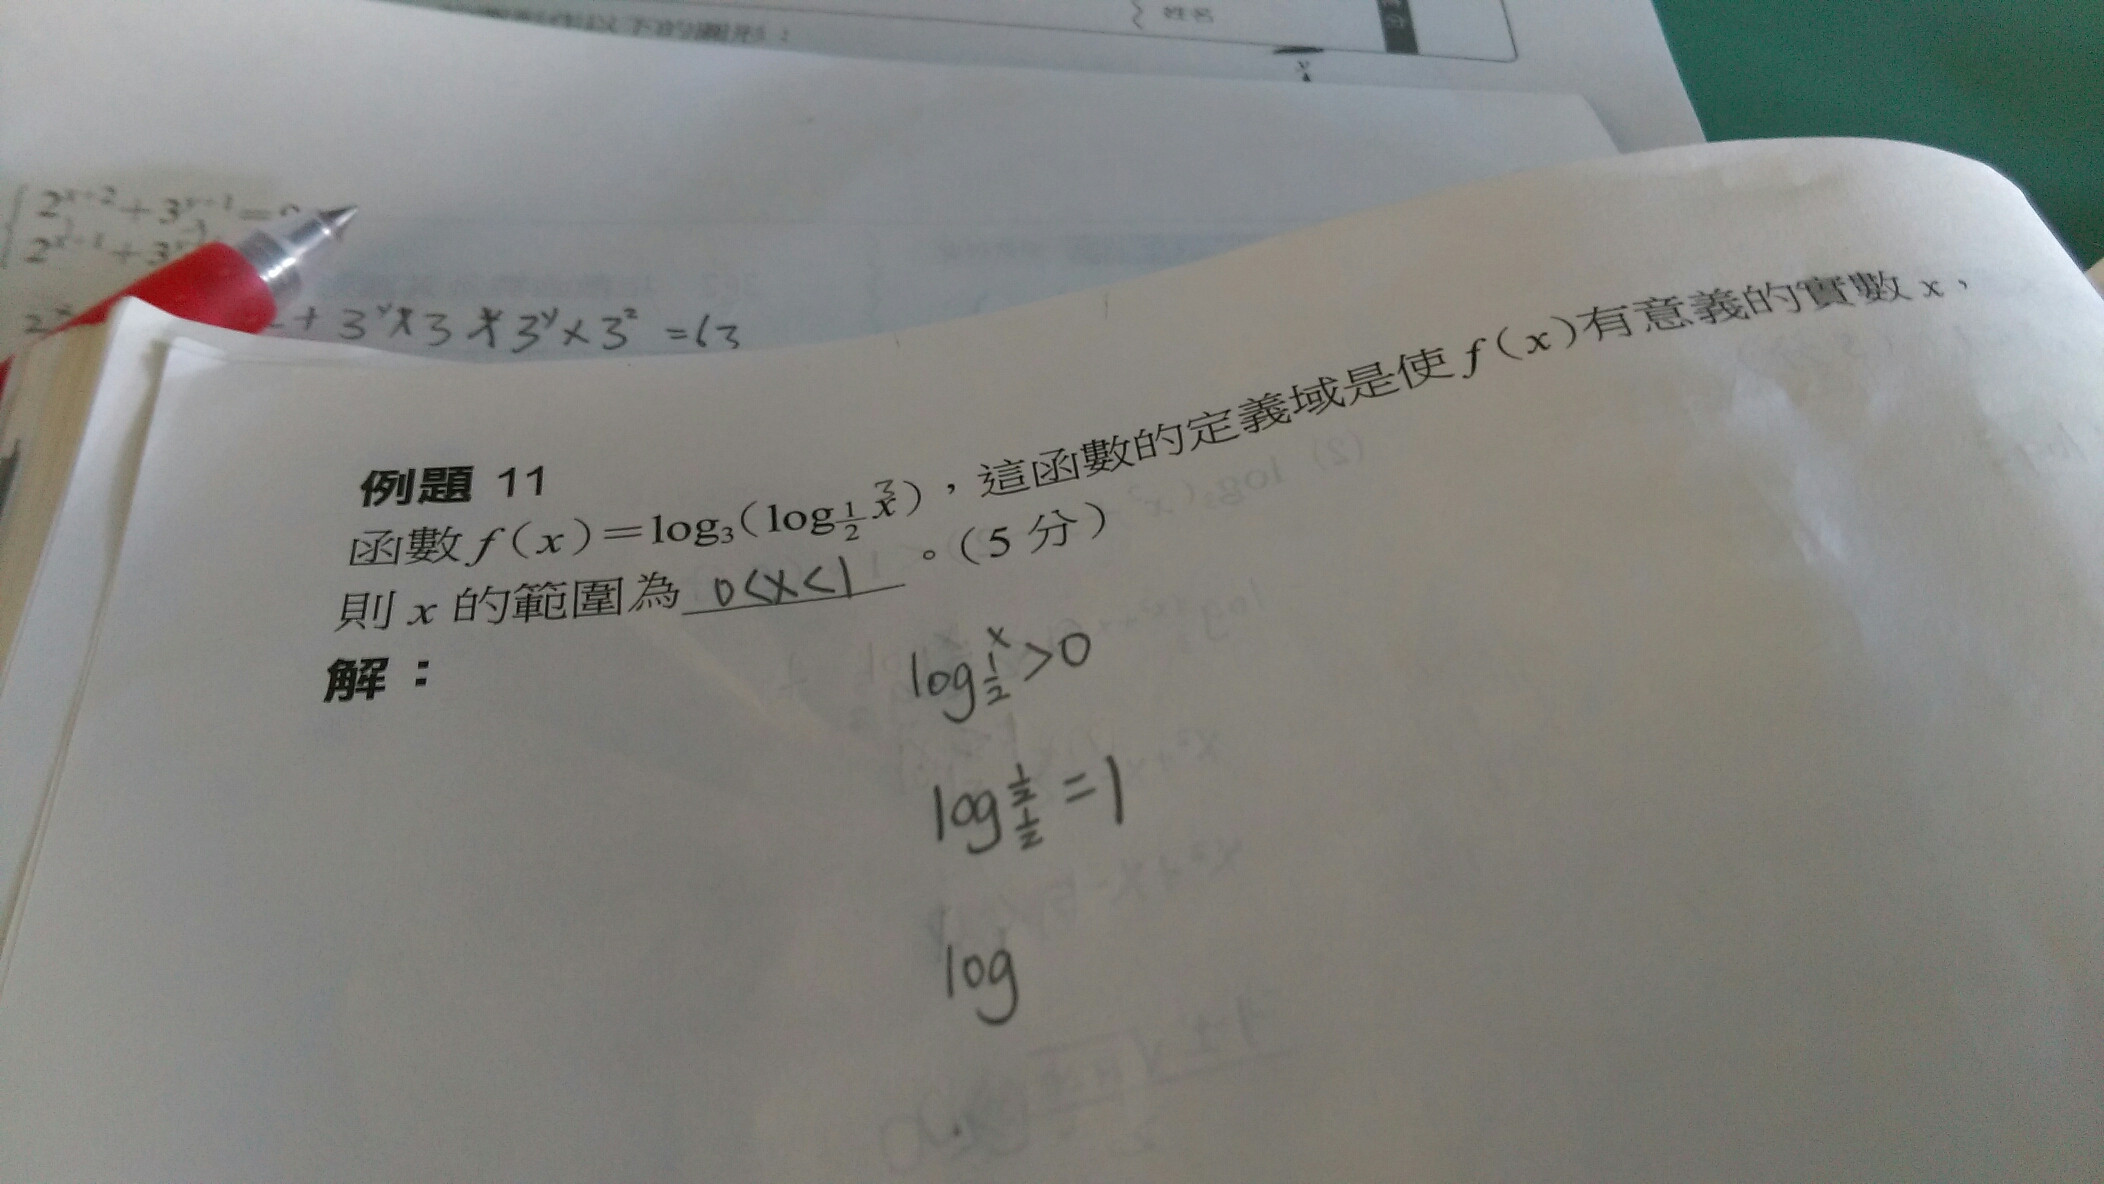 姓名
以下的圖形：
2^{x-2}+3^{y-1}=
2^{x-1}+3
+3^y×3+3^y×3²=63
例題 11
函數 f(x)=log₃(log_{1/2} x)，這函數的定義域是使 f(x)有意義的實數 x，
則 x 的範圍為 0<x<1 。(5 分)
解：
log_{1/2} x >0
log_{1/2} 1/2 =1
log